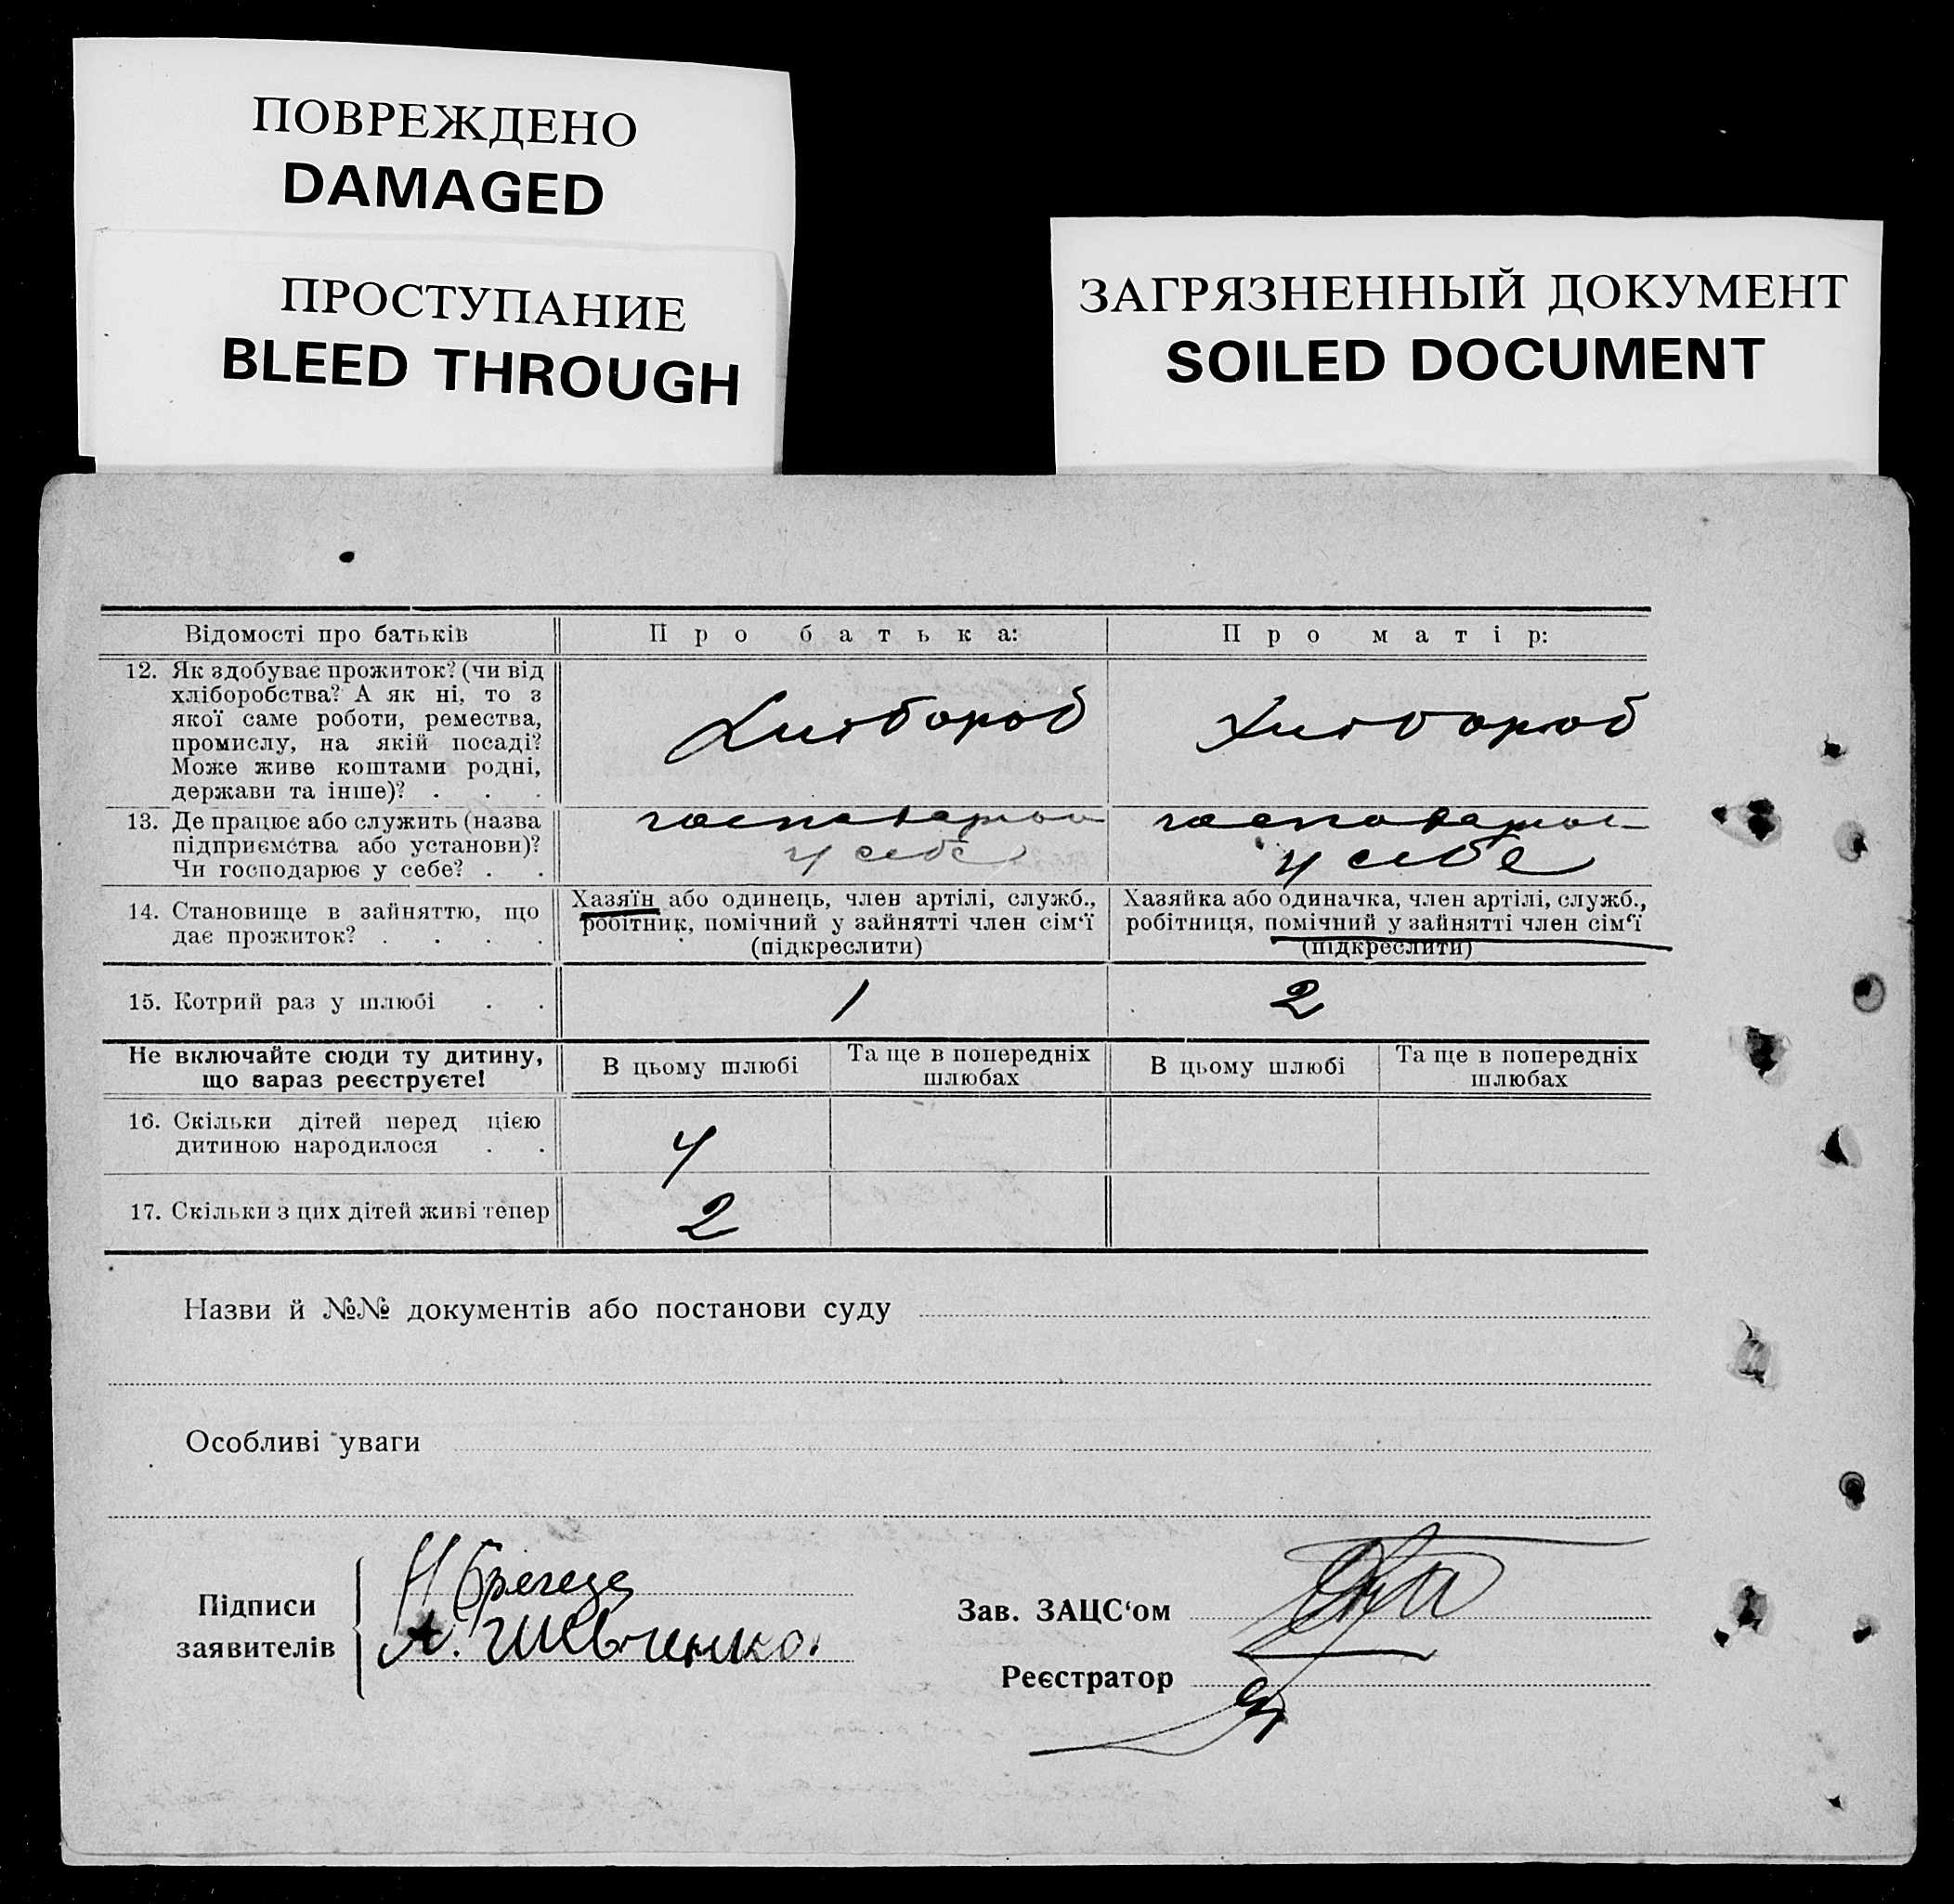 ПОВРЕЖДЕНО
DAMAGED
ПРОСТУПАНИЕ
BLEED THROUGH
ЗАГРЯЗНЕННЫЙ ДОКУМЕНТ
SOILED DOCUMENT
Відомості про батьків Про батька: Про матір:
12. Як здобуває прожиток? (чи від
хліборобства? А як ні, то з
якої саме роботи, ремества,
промислу, на якій посаді?
Може живе коштами родні,
держави та інше)? . . .
Хлібороб Хлібороб
13. Де працює або служить (назва
підприємства або установи)?
Чи господарює у себе? . .
у себе
у себе
14. Становище в зайняттю, що
дає прожиток? . . . .
Хазяїн або одинець, член артілі, служб.,
робітник, помічний у зайнятті член сім‘ї
(підкреслити)
Хазяйка або одиначка, член артілі, служб.,
робітниця, помічний у зайнятті член сім‘ї
(підкреслити)
15. Котрий раз у шлюбі . . 1 2
Не включайте сюди ту дитину,
що зараз реєструєте!
В цьому шлюбі
Та ще в попередніх
шлюбах
В цьому шлюбі
Та ще в попередніх
шлюбах
16. Скільки дітей перед цією
дитиною народилося . .
4
17. Скільки з цих дітей живі тепер 2
Назви й №№ документів або постанови суду
Особливі уваги
Підписи
заявителів
А. Шевченко.
Зав. ЗАЦС‘ом
Реєстратор